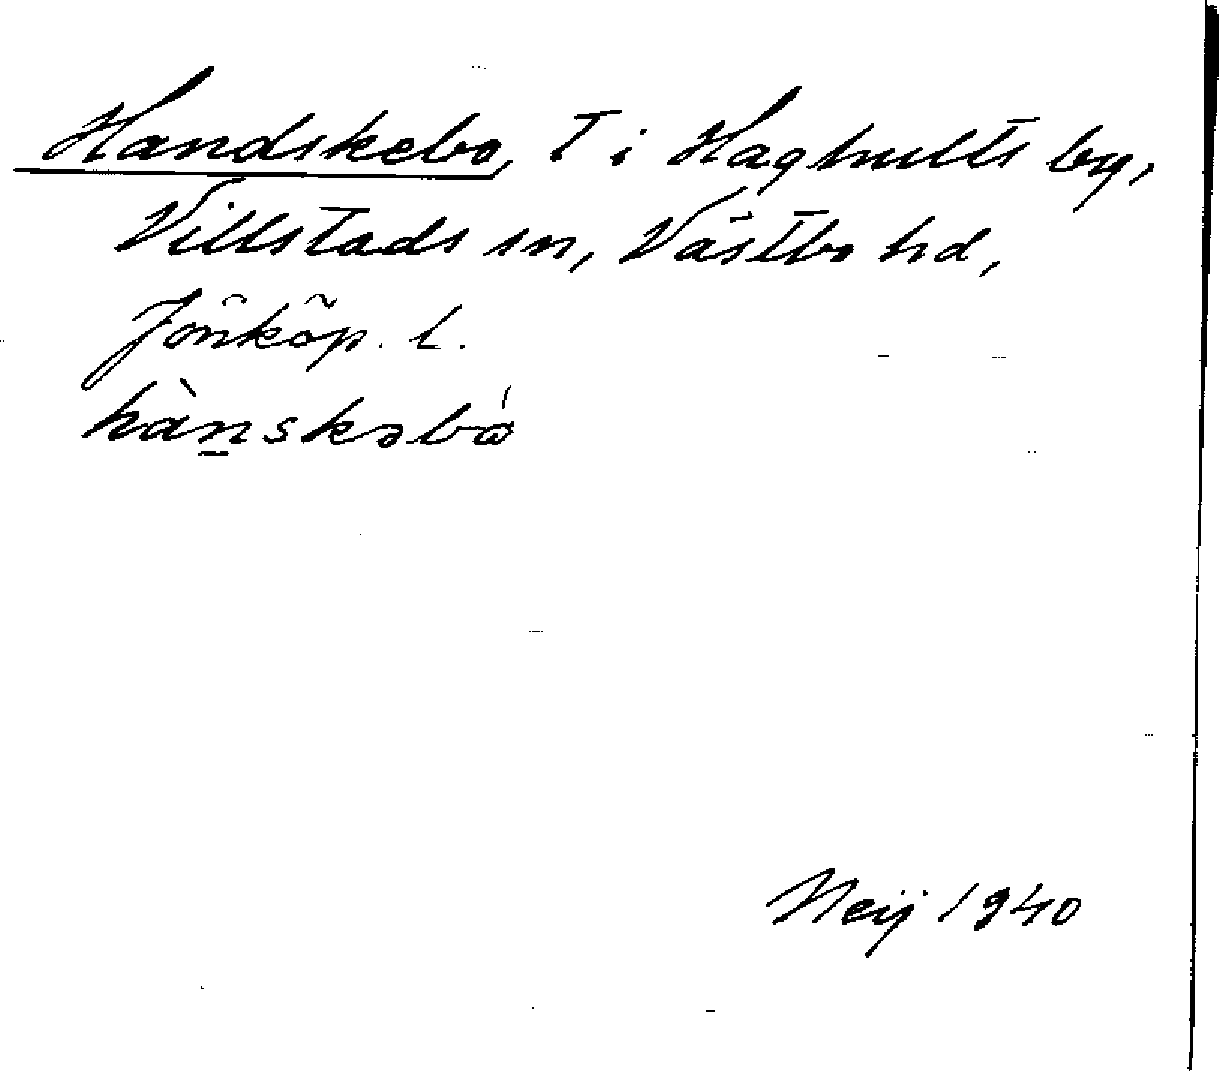 Handskebo, T i Haghults by,
Villstads sn, Västbo hd,
Jönköp. l.
hànskəbo̍
Neij 1940